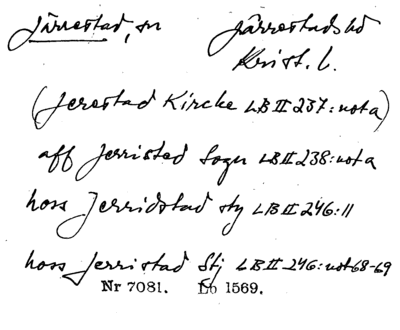 Järrestad, sn Järrestads hd
Krist. l.
(Jerestad Kircke LB II 237: not a)
aff Jerristed Sogn LB II 238: not a
hoss Jerridstad sty LB II 246: 11
hoss Jerristad Stj LB II 246: not 68-69
Nr 7081. Lo 1569.